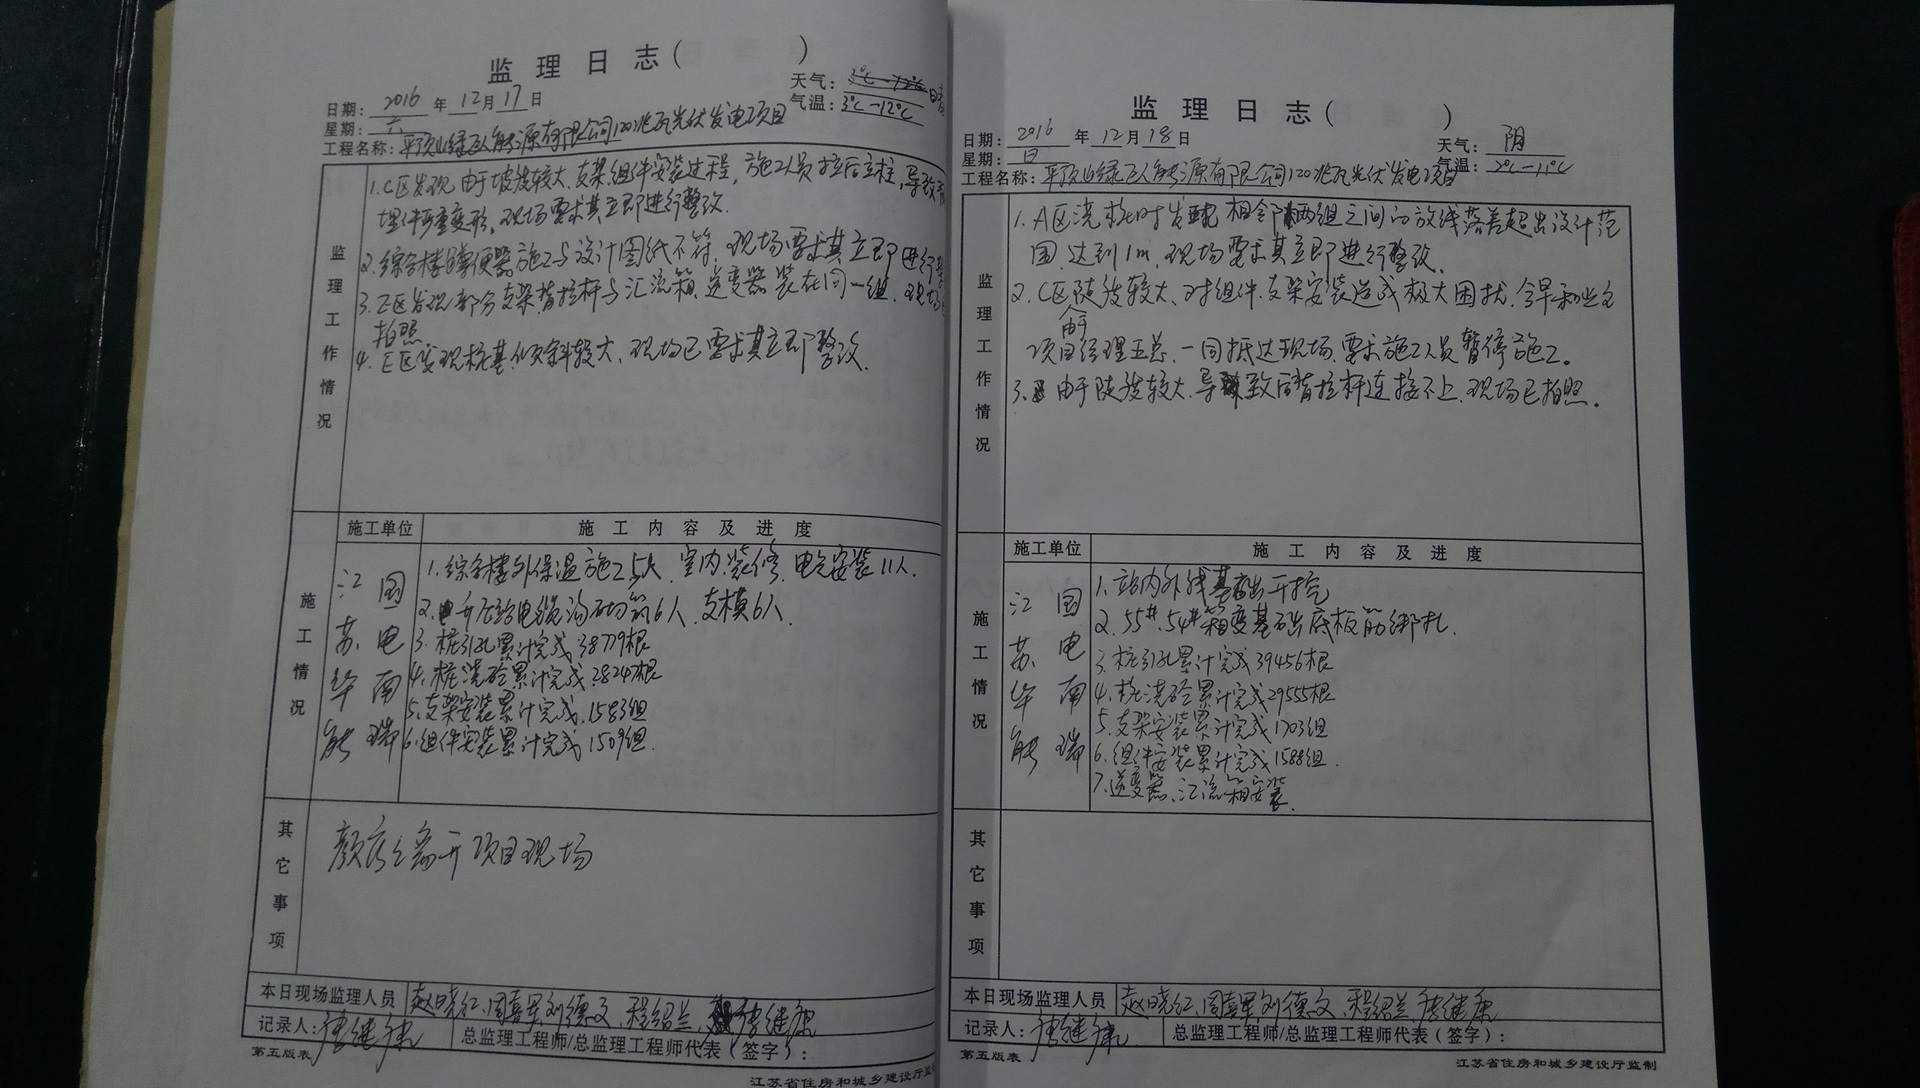 监理日志( )
日期: 2016 年 12月 17 日
天气: 晴
星期: 六
气温: 3℃-12℃
工程名称: 平顶山绿巨人能源有限公司120兆瓦光伏发电项目
监理工作情况
1.C区发现由于坡度较大,支架组件安装过程,施工人员拉后立柱,导致预
埋件严重变形,现场要求其立即进行整改.
2.综合楼蹲便器施工与设计图纸不符,现场要求其立即进行整
3.E区发现部分支架背拉杆与汇流箱、逆变器装在同一组,现场已
拍照
4.E区发现桩基倾斜较大,现场已要求其立即整改.
施工情况
施工单位
施工内容及进度
江苏华能
国电南瑞
1.综合楼外保温施工5人,室内装修、电气安装11人.
2.开压站电缆沟砌筑6人、支模6人.
3.桩引孔累计完成38779根
4.桩浇砼累计完成28247根
5.支架安装累计完成1583组
6.组件安装累计完成1509组.
其它事项
离开项目现场
本日现场监理人员 赵晓红、周喜军、刘德文、程绍兰、唐继康
记录人: 唐继康
总监理工程师/总监理工程师代表(签字):
第五版表
江苏省住房和城乡建设厅监制
监理日志( )
日期: 2016 年 12月 18 日
天气: 阴
星期: 日
气温: 2℃-11℃
工程名称: 平顶山绿巨人能源有限公司120兆瓦光伏发电项目
监理工作情况
1.A区浇桩时发现相邻两组之间的放线落差超出设计范
围,达到1m,现场要求其立即进行整改.
2.C区由于陡坡较大、对组件、支架安装造成极大困扰,今早和业主
项目经理王总,一同抵达现场,要求施工人员暂停施工。
3.由于陡坡较大,导致后背拉杆连接不上,现场已拍照。
施工情况
施工单位
施工内容及进度
江苏华能
国电南瑞
1.站内外线基础开挖
2.55#、54#箱变基础底板筋绑扎.
3.桩引孔累计完成39456根
4.桩浇砼累计完成29555根
5.支架安装累计完成1703组
6.组件安装累计完成1588组.
7.逆变器、汇流箱安装.
其它事项
本日现场监理人员 赵晓红、周喜军、刘德文、程绍兰、唐继康
记录人: 唐继康
总监理工程师/总监理工程师代表(签字):
第五版表
江苏省住房和城乡建设厅监制